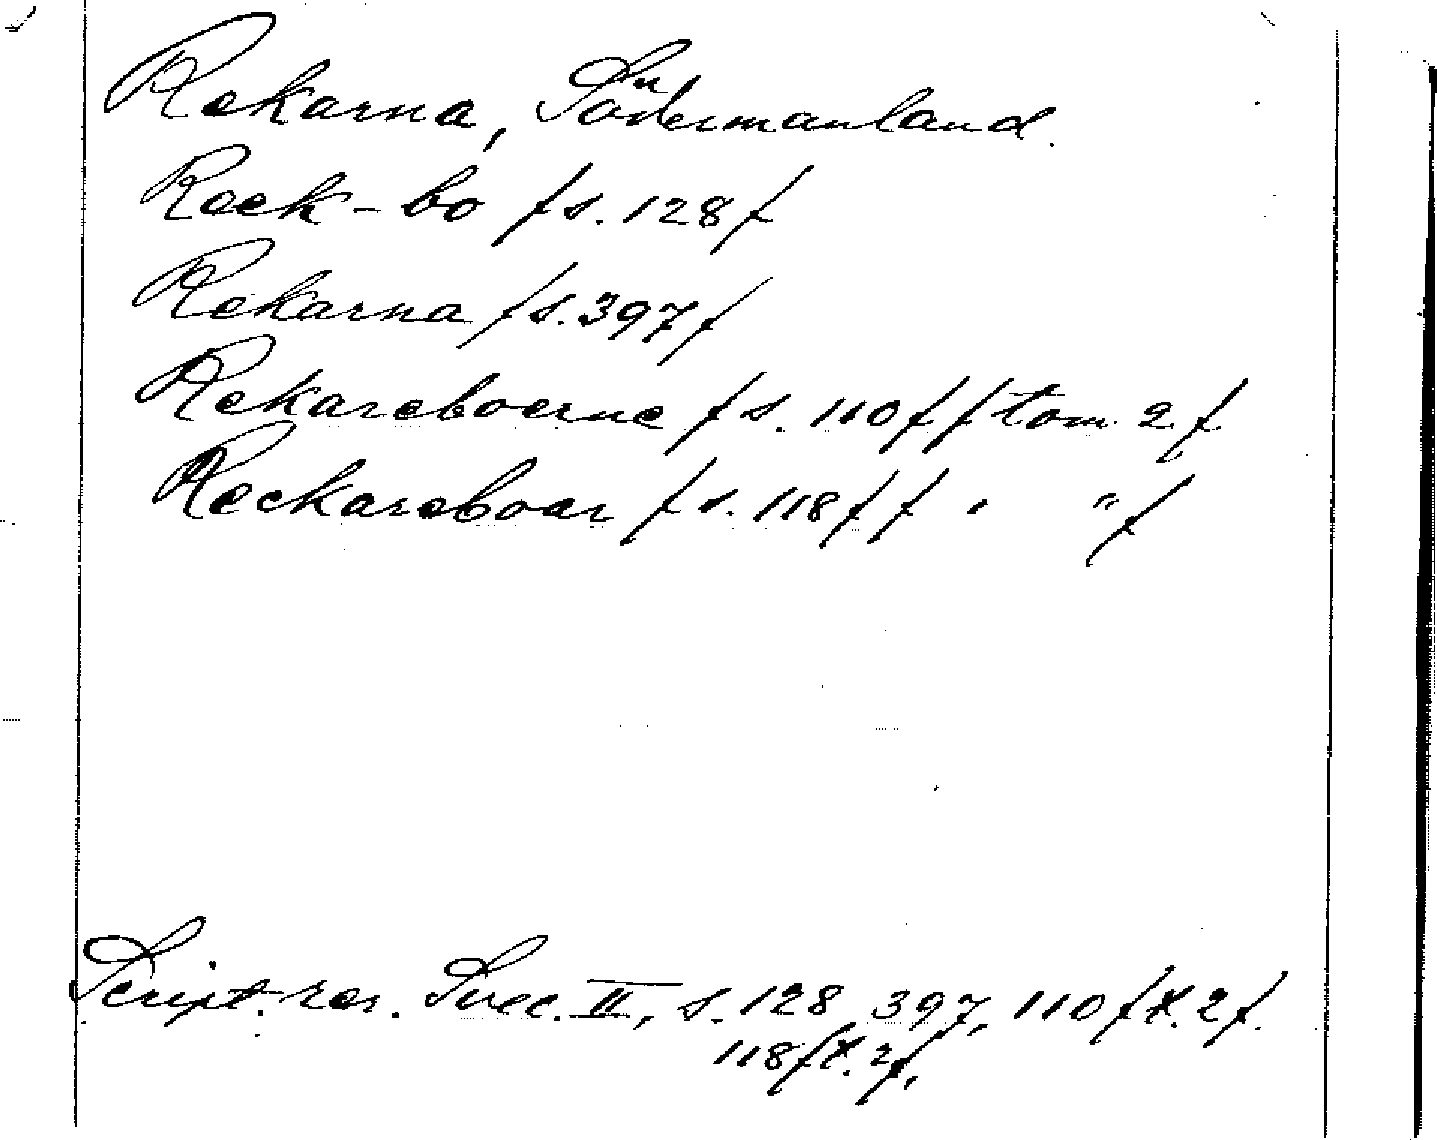 Rekarna, Södermanland.
Reek-bo /s. 128/
Rekarna /s. 397/
Rekareboerne /s. 110/ /tom. 2/
Reckareboar /s. 118/ / " "/
Script. rer. Svec. II, s. 128, 397, 110 /t. 2/.
118 /t. 2/,